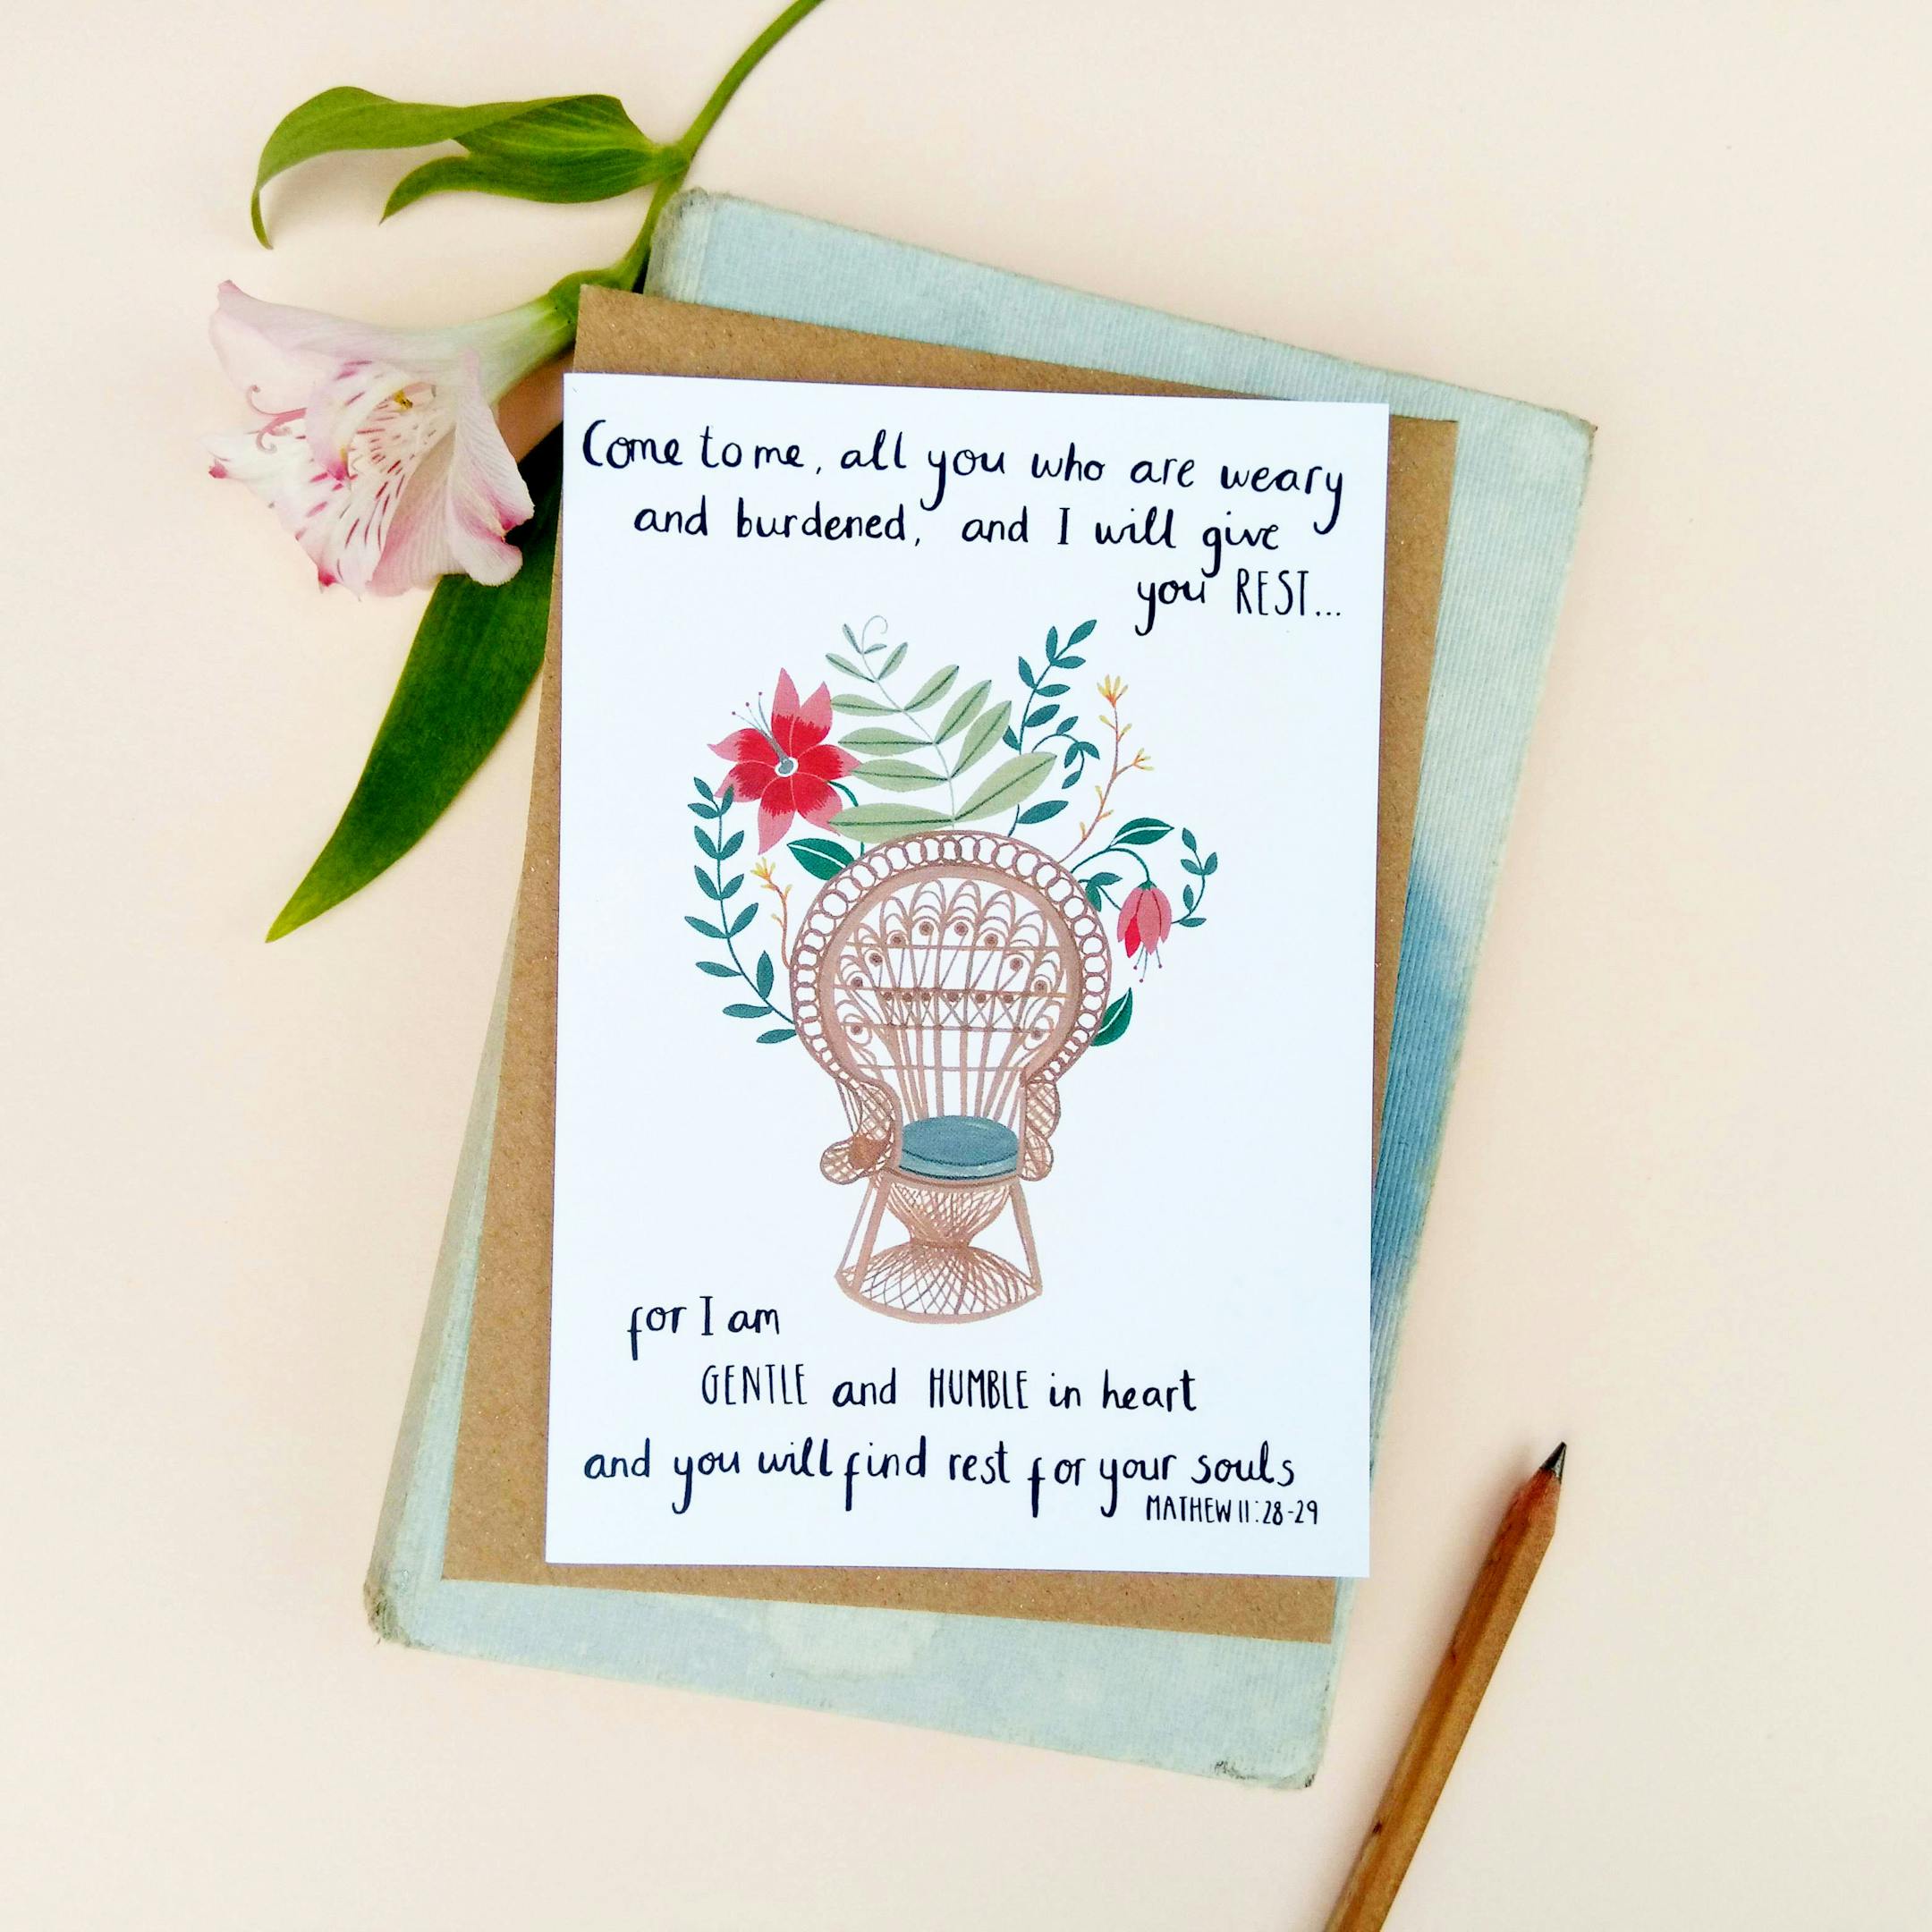 Come to me, all you who are weary
and burdened, and I will give
you REST...
for I am
GENTLE and HUMBLE in heart
and you will find rest for your souls
MATHEW 11:28-29